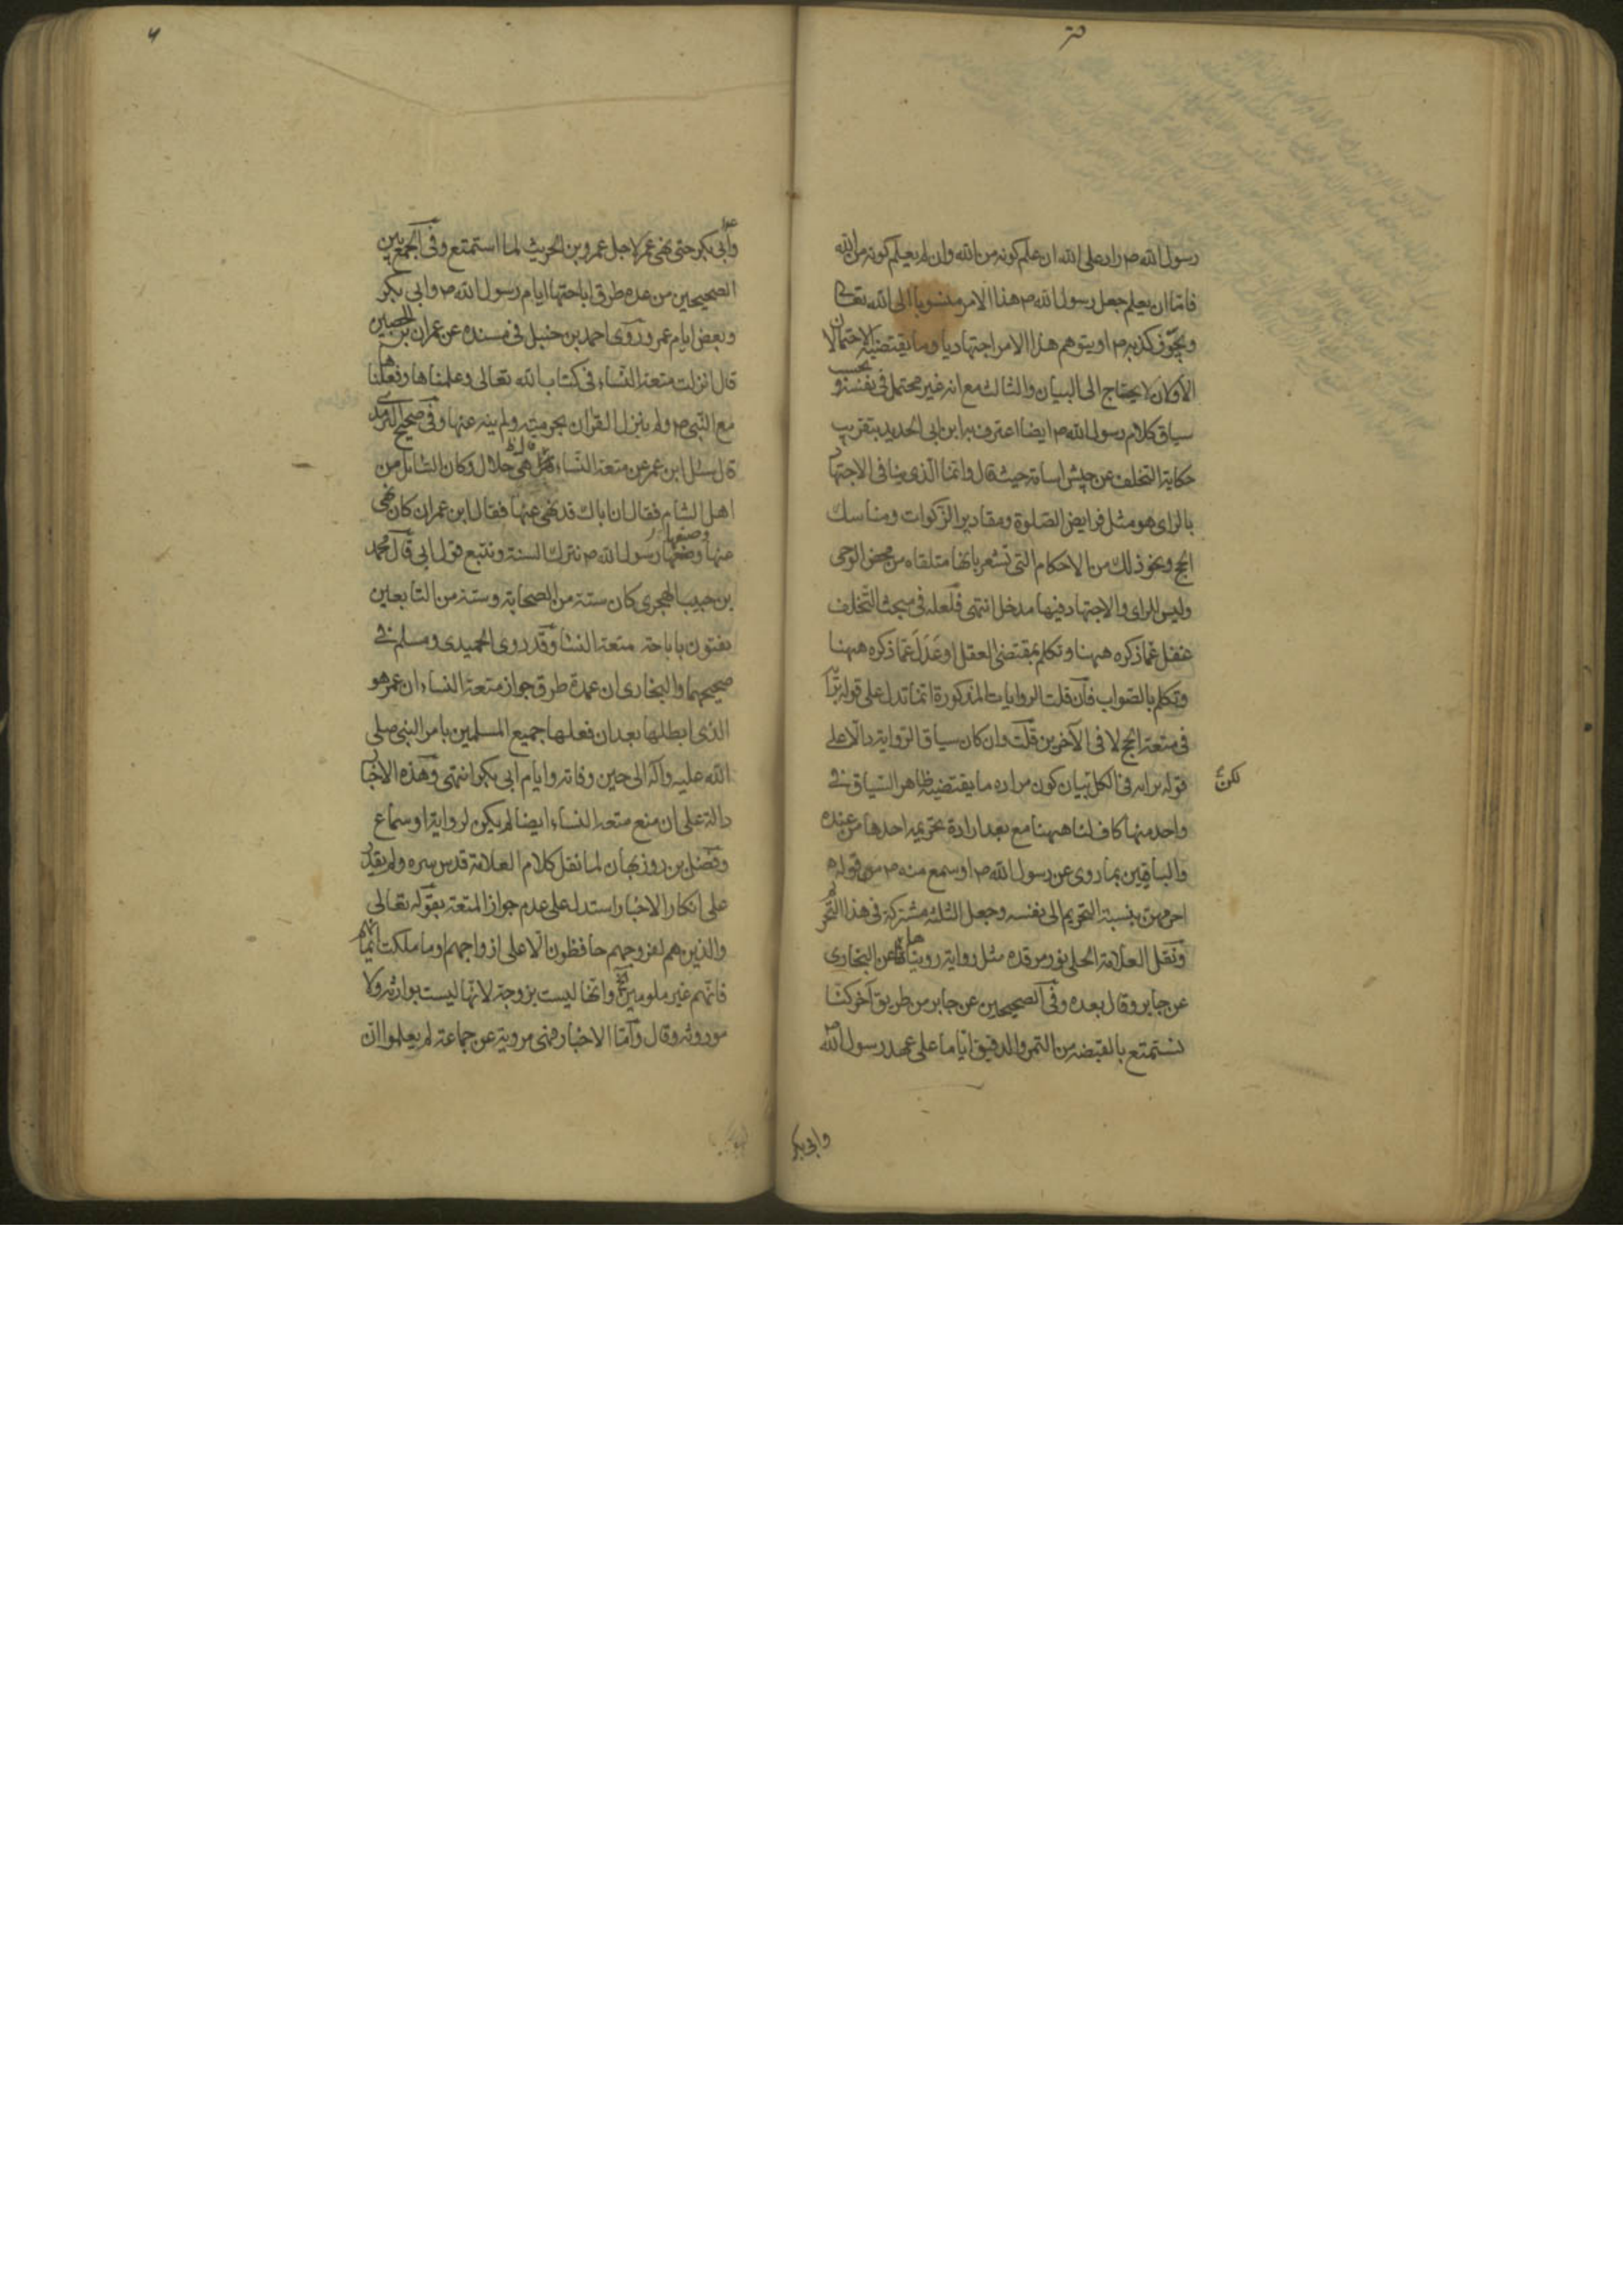 رسول الله ص راد على الله ان علم كونه من الله وان لم يعلم كونه من الله
فاما ان يعلم جعل رسول الله ص هذا الامر منسوبا الى الله تعالى
ويجوز كذبه ص او يتوهم هذا الامر اجتهاديا وما يقتضيه الاحتمالان
الأولان لا يحتاج الى البيان والثالث مع انه غير محتمل فى نفسه و بحسب
سياق كلام رسول الله ص ايضا اعترف به ابن ابى الحديد بتقريب
حكاية التخلف عن جيش اسامة حيث قال وانما الذى ينافى الاجتهاد
بالراى هو مثل فرايض الصلوة ومقادير الزكوات ومناسك
الحج ونحو ذلك من الاحكام التى تشعر بانها متلقاه من محض الوحى
وليس للراى والاجتهاد فيها مدخل انتهى فلعله فى مبحث التخلف
غفل عما ذكره ههنا وتكلم بمقتضى العقل او عَدَلَ عما ذكره ههنا
وتكلم بالصواب فان قلت الروايات المذكورة انما تدل على قوله برايه
فى متعة الحج لا فى الآخرين قلت وان كان سياق الرواية دالا على
قوله برايه فى الكل بيان كون مراده ما يقتضيه ظاهر السياق فى
لكن
واحد منها كاف لنا ههنا مع بعد ارادة تحريم احدها من عنده
والباقيين بما روى عن رسول الله ص او سمع منه ص من قوله
احرمهن بنسبة التحريم الى نفسه وجعل الثلثه مشتركة فى هذا التحريم
ونقل العلامة الحلى نور مرقده مثل رواية رويناها عن البخارى
عن جابر وقال بعده وفى الصحيحين عن جابر من طريق آخر كنا
نستمتع بالقبضه من التمر والدقيق اياما على عهد رسول الله ص
وابى بكر
وأبى بكر حتى نهى عمر لاجل عمرو بن الحريث لما استمتع وفى الجمع بين
الصحيحين من عده طرق اباحتها ايام رسول الله ص وابى بكر
وبعض ايام عمر وروى احمد بن حنبل فى مسنده عن عمران بن الحصين
قال انزلت متعة النساء فى كتاب الله تعالى وعلمناها وفعلناها
مع النبى ص ولم ينزل القرآن بحرمته ولم ينه عنها وفى صحيح الترمذى
قال سئل ابن عمر عن متعة النساء فقال هى حلال وكان السائل من
اهل الشام فقال ان اباك قد نهى عنها فقال ابن عمر ان كان نهى
عنها وصنعها رسول الله ص نترك السنة ونتبع قول ابى قال محمد
وصنعها
بن حبيب الهجرى كان ستة من الصحابة وستة من التابعين
يفتون باباحة متعة النسا وقد روى الحميدى ومسلم فى
صحيحهما والبخارى ان عمدة طرق جواز متعة النساء ان عمر هو
الذى ابطلها بعد ان فعلها جميع المسلمين بامر النبى صلى
الله عليه وآله الى حين وفاته وايام ابى بكر انتهى وهذه الاخبار
دالة على ان منع متعة النساء ايضا لم يكن لرواية او سماع
وفضل بن روزبهان لما نقل كلام العلامة قدس سره ولم يقدر
على انكار الاخبار استدل على عدم جواز المتعة بقوله تعالى
والذين هم لفروجهم حافظون الا على ازواجهم او ما ملكت ايمانهم
فانهم غير ملومين وانها ليست بزوجة لانها ليست بوارثه ولا
موروثه وقال وأما الاخبار فهى مروية عن جماعة لم يعلموا ان